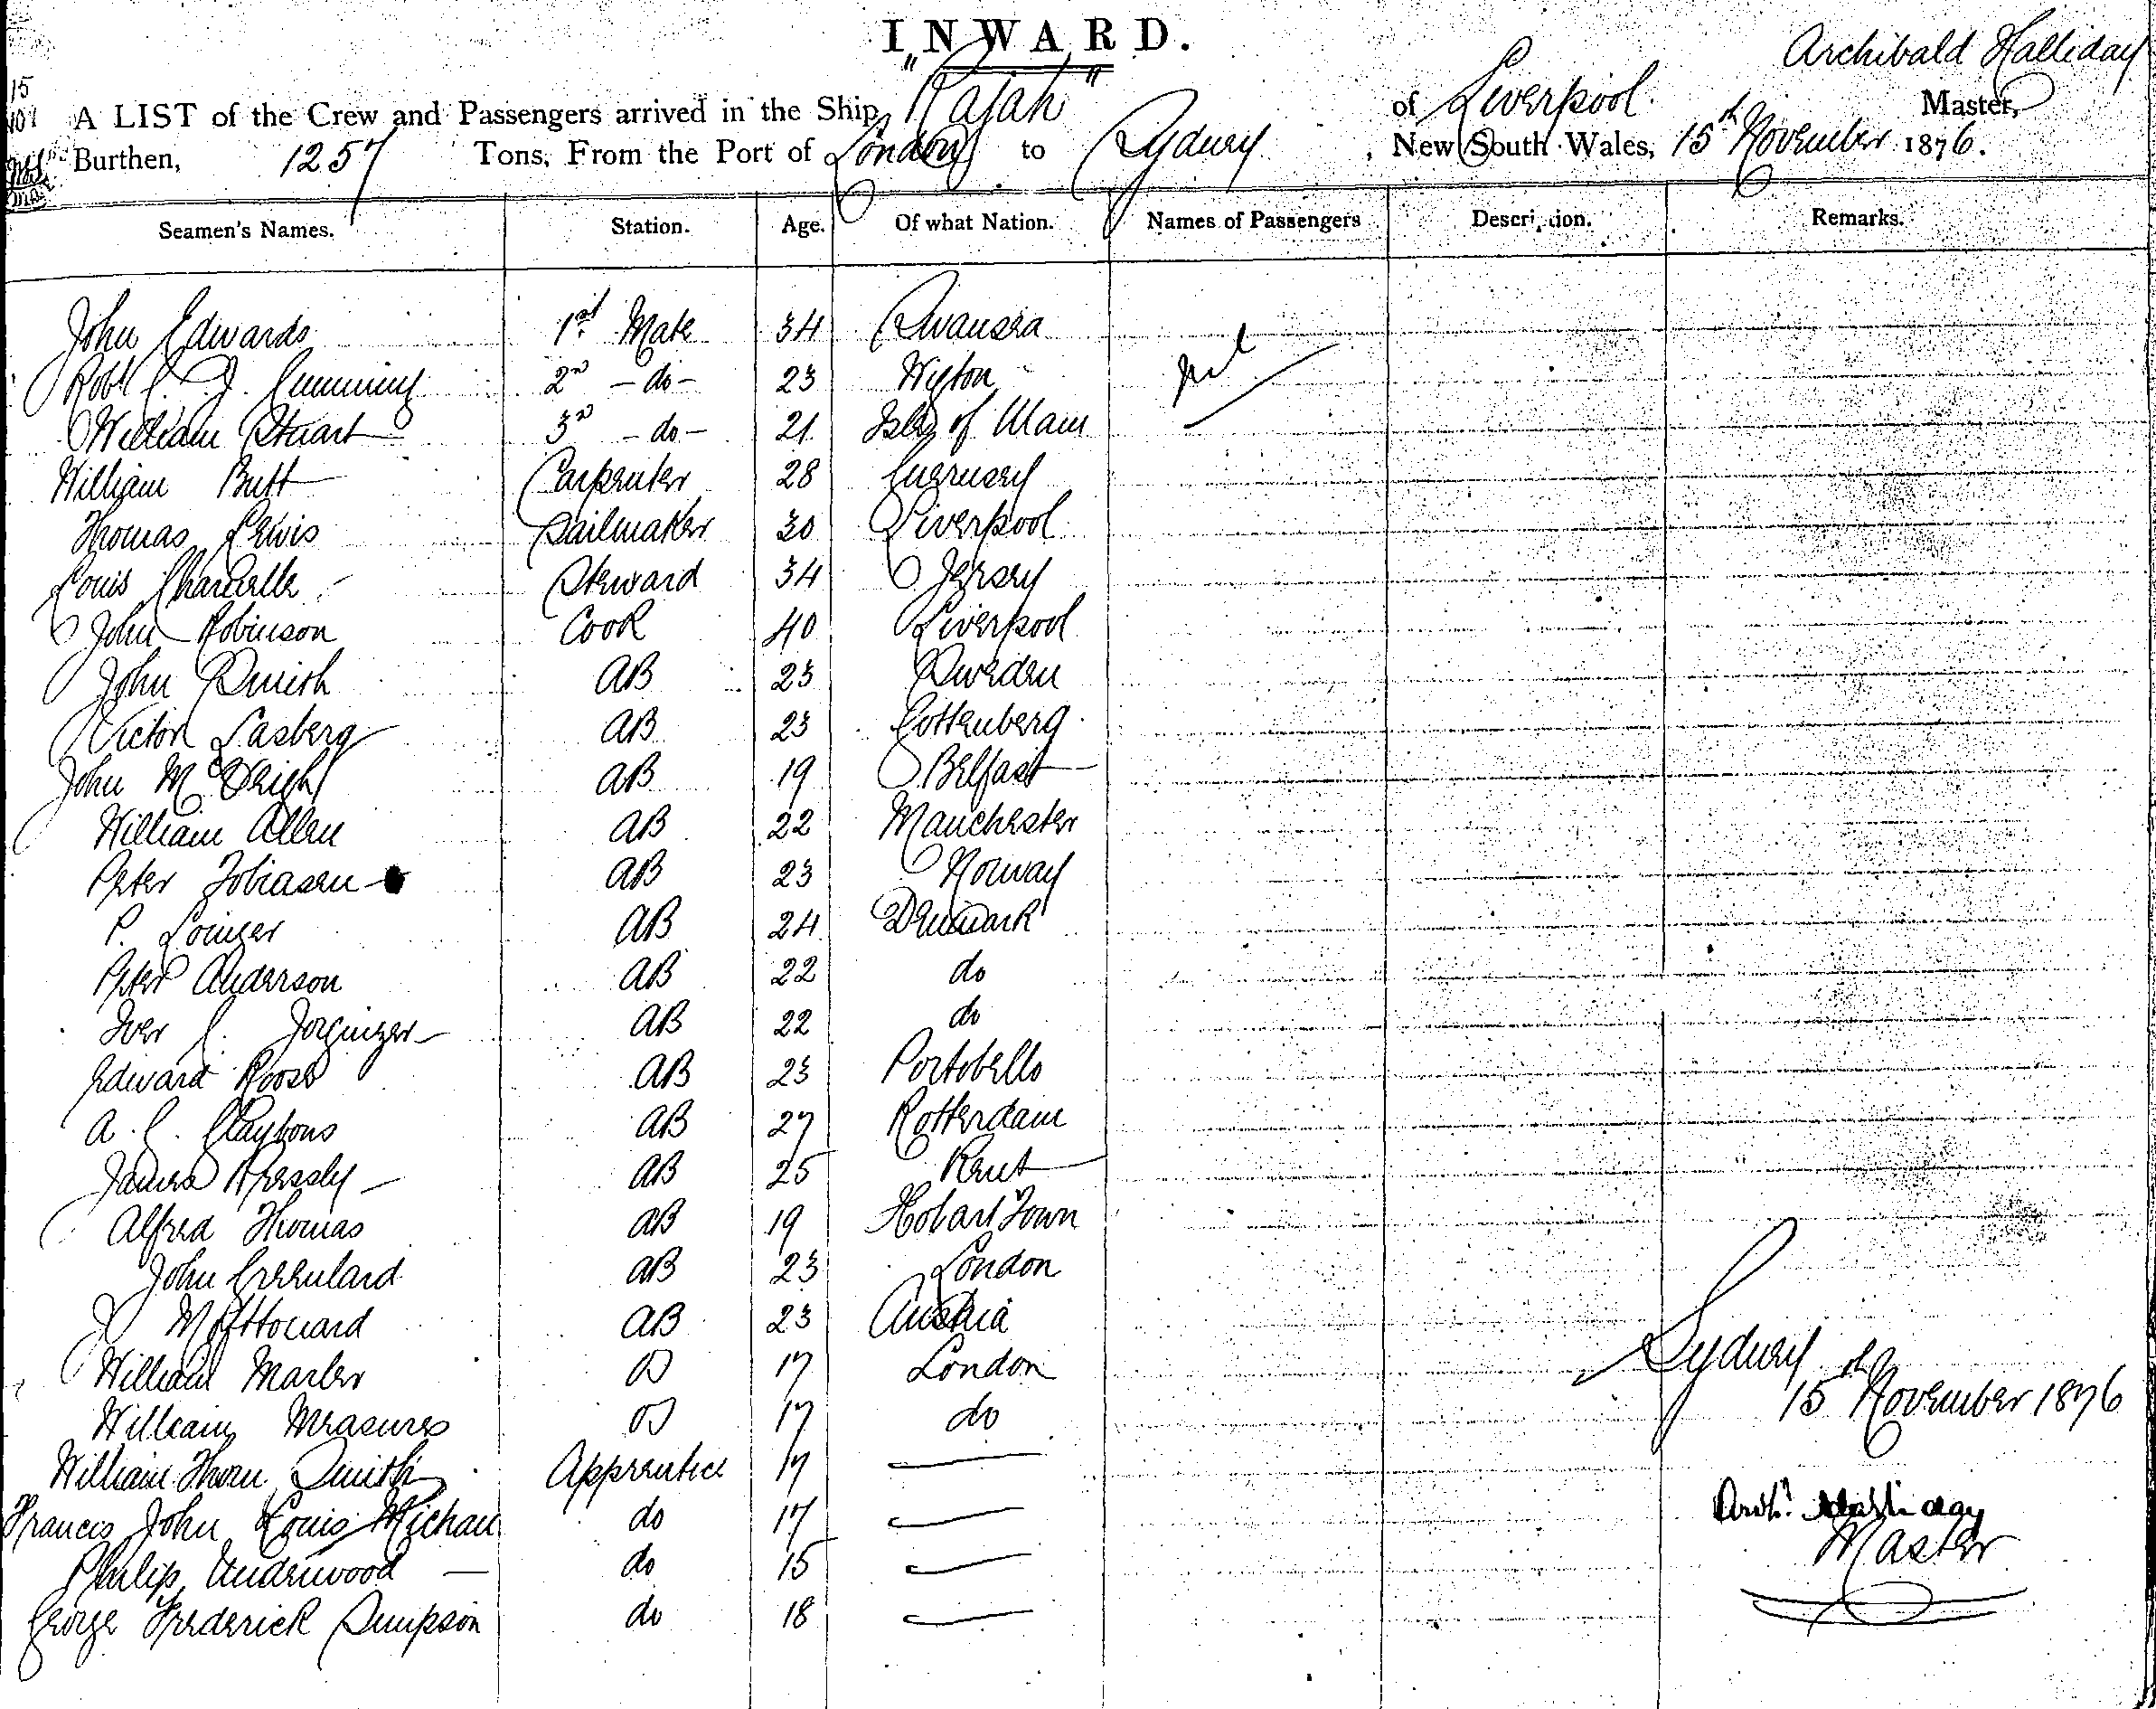 INWARD.
Archibald Halliday
A LIST of the Crew and Passengers arrived in the Ship "Rajah" of Liverpool Master,
Burthen, 1257 Tons, From the Port of London to Sydney, New South Wales, 15th November 1876.
Seamen's Names. Station. Age. Of what Nation. Names of Passengers Description. Remarks.
John Edwards 1st Mate 34 Swansea nil
Robt C. J. Cumming 2nd - do - 23 Wigton
William Stuart 3rd - do - 21 Isle of Mann
William Butt Carpenter 28 Guernsey
Thomas Lewis Sailmaker 30 Liverpool
Louis Steward 34 Jersey
John Robinson Cook 40 Liverpool
John Smith AB 23 Sweden
Victor Lasberg AB 23 Gottenberg
John AB 19 Belfast
William Allen AB 22 Manchester
Peter Tobiasen AB 23 Norway
P. AB 24 Denmark
Peter Anderson AB 22 do
Iver C. AB 22 do
Edward AB 23 Portobello
A. C. AB 27 Rotterdam
James AB 25 Kent
Alfred Thomas AB 19 Hobart Town
John AB 23 London
AB 23 Austria
William OS 17 London
William Measures OS 17 do
William Smith Apprentice 17 —
Francis John Louis Michau do 17 —
Philip Underwood — do 15 —
George Frederick Simpson do 18 —
Sydney
15th November 1876
Archd. Halliday
Master